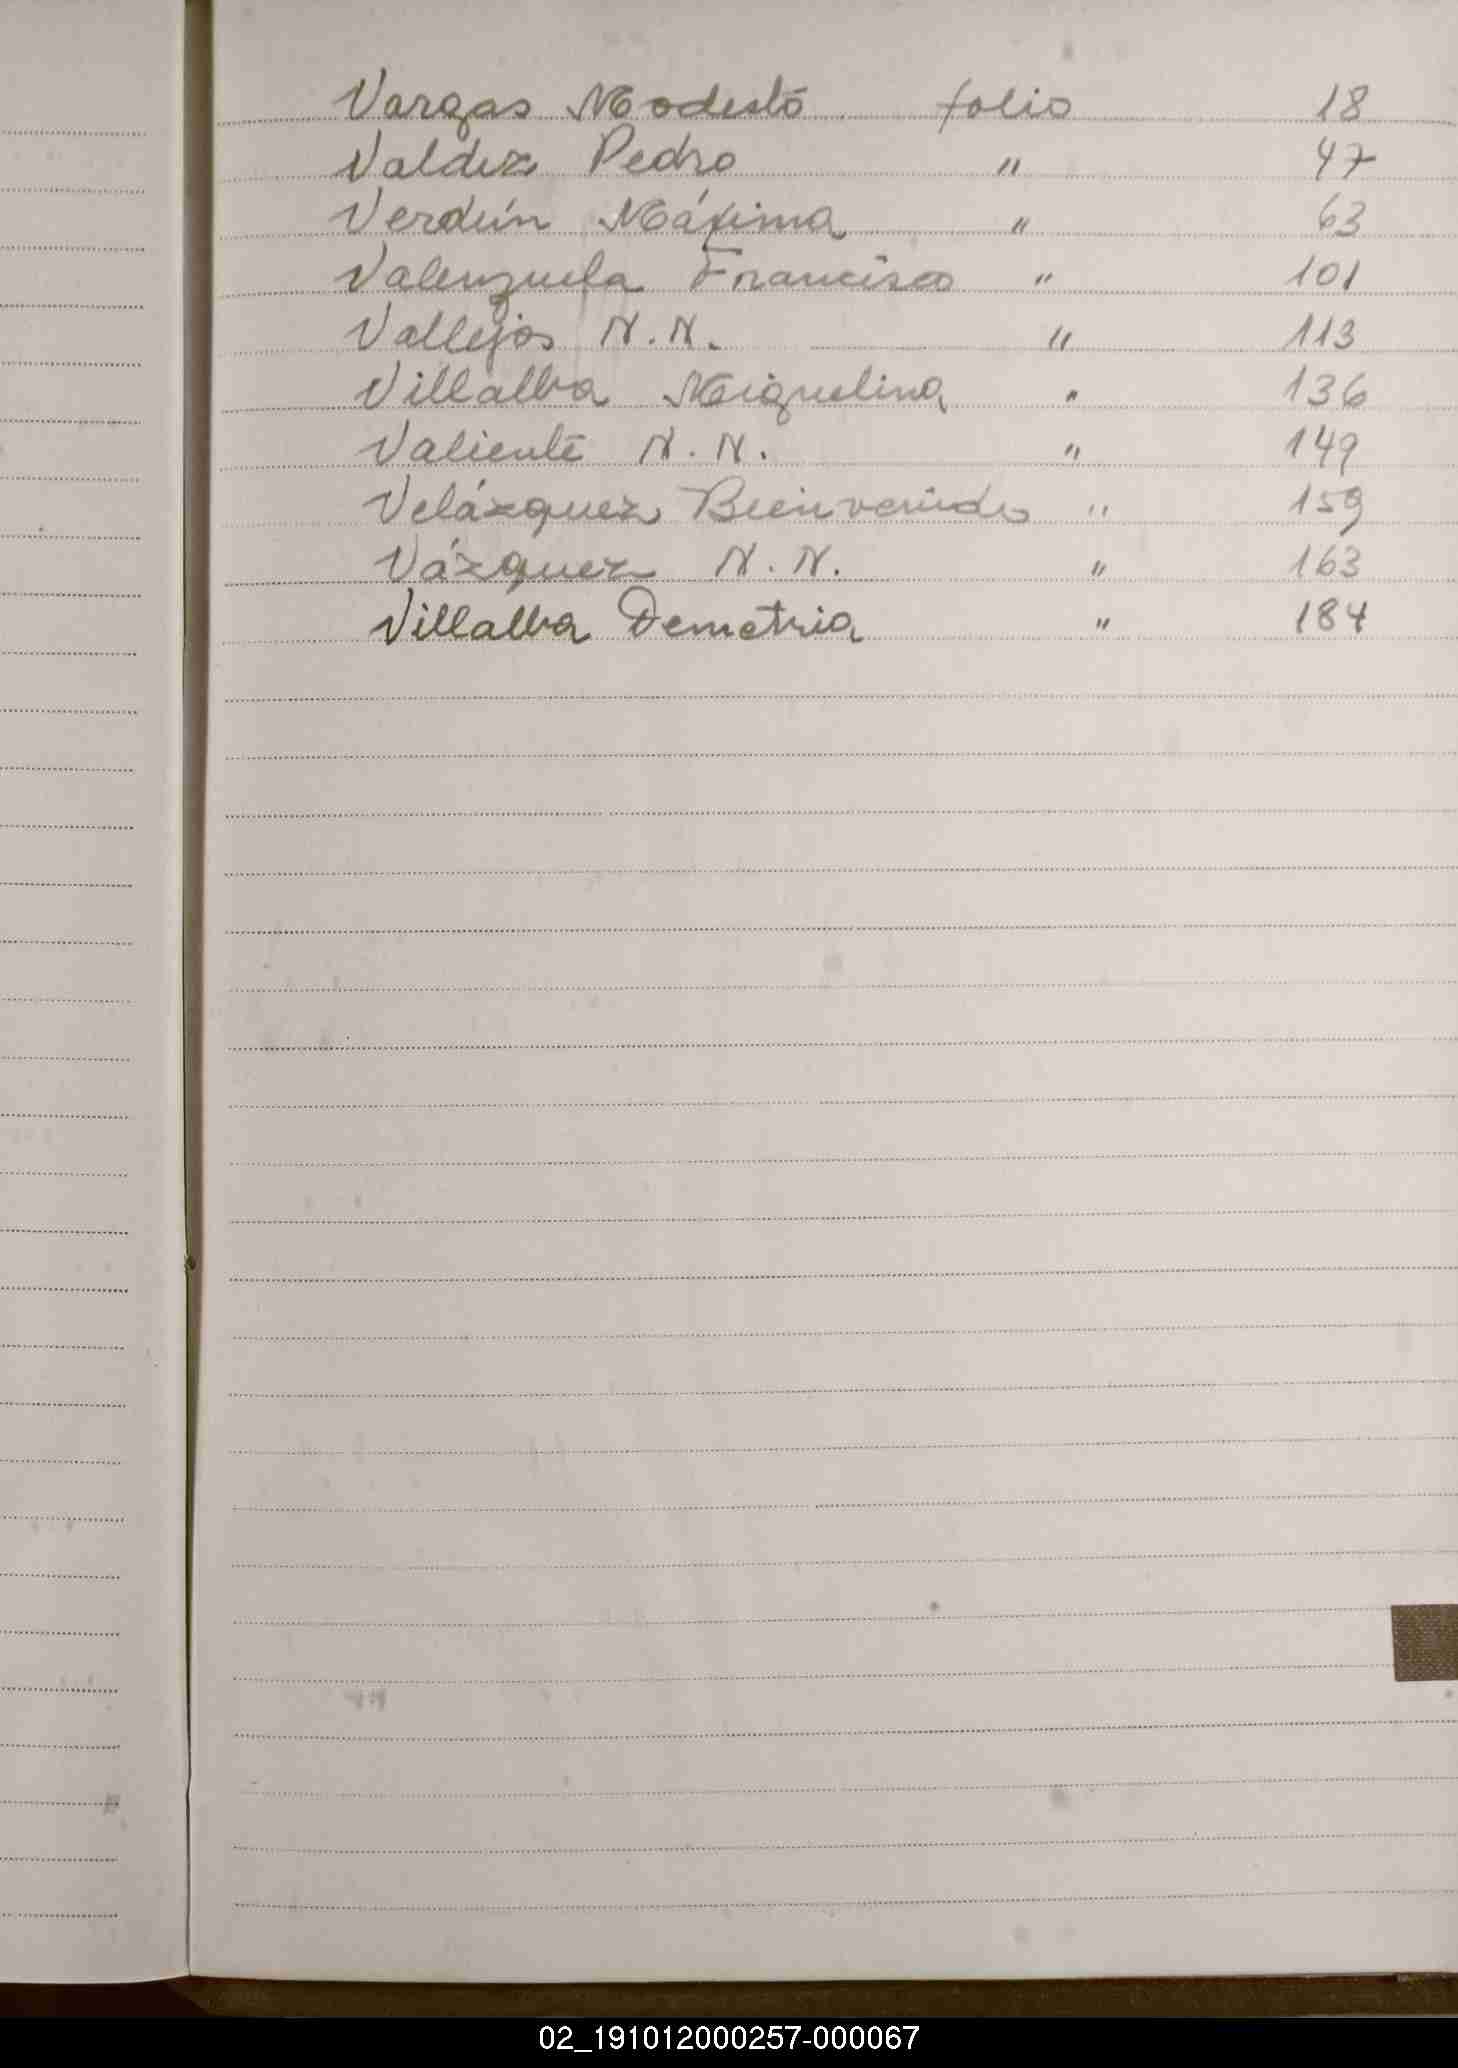 Vargas Modesto folio 18
Valdez Pedro " 47
Verdún Máxima " 63
Valenzuela Francisco " 101
Vallejos N.N. " 113
Villalba Miguelina " 136
Valiente N.N. " 149
Velázquez Bienvenido " 159
Vázquez N.N. " 163
Villalba Demetria " 184
02_191012000257-000067